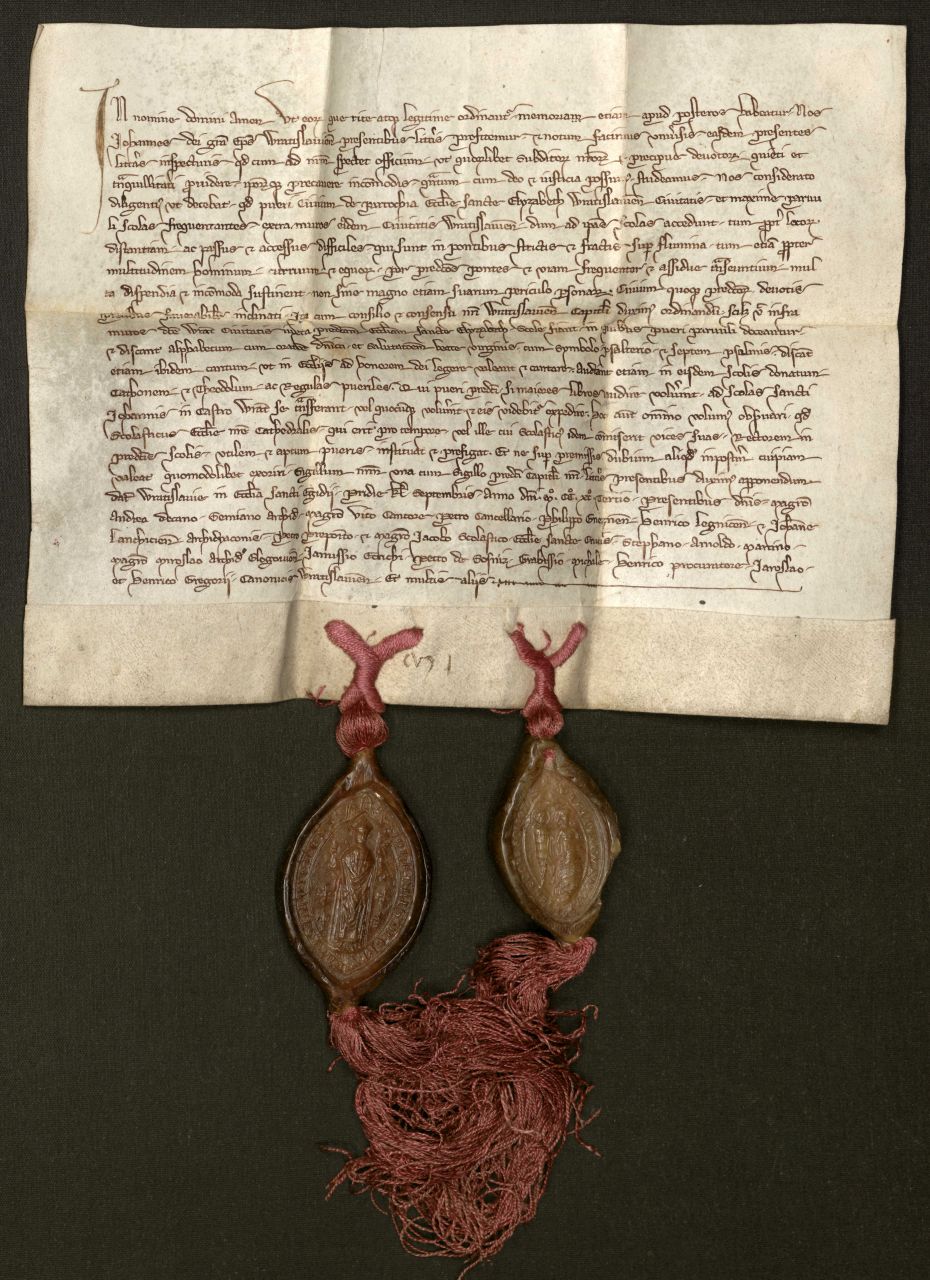 In nomine domini Amen Ut eor que rite atq legitime ordinant memoriam etiam apud posteros habeatur Nos
Johannes dei gra Epus Wratislavien presentibus litteris profitemur & notum facimus universis easdem presentes
litteras inspecturis qd cum ad nrm spectet officium ut quorlibet subditor nror & precipue devotor quieti et
tranquillitati providere ipor precavere incomodis quatum cum deo & iusticia possum studeamus Nos considerato
diligenti ut decebat qd pueri Civium de parrochia Ecclie sancte Elyzabeth Wratislavien Civitatis et maxime parvu
li scolas frequentantes extra muros eiusdem Civitatis Wratislavien dum ad ipas scolas accedunt tum ppt locor
distantiam ac passus & accessus difficiles qui sunt in pontibus strictis & fractis sup flumina tum etia ppter
multitudinem hominum curruum & equor per predcos pontes & viam frequenter & assidue transeuntium mul
ta dispendia & incomoda sustinent non sine magno etiam suarum periculo psonar Civium quoq predcor devotis
precibus favorabilit inclinati de consilio & consensu nri Wratislavien Capituli duximus ordinandu scilz ut infra
muros dce Wrat Civitatis iuxta predcam Eccliam sancte Elyzabeth scole fiant in quibus pueri parvuli doceantur
& discant alphabetum cum oracoe dnica et salutatoem beate virginis cum symbolo psalterio & septem psalmis discat
etiam ibidem cantum ut in Ecclijs ad honorem dei legere valeant & cantare Audiant etiam in eisdem scolis donatum
Cathonem & Theodolum ac Regulas pueriles Qui pueri predci si maiores libros audire voluerint ad scolas sancti
Johannis in Castro Wrat se transferant vel quocuq voluerint & eis videbit expedire hoc aut omino volum observari qd
Scolasticus Ecclie nre Cathedralis qui erit pro tempore vel ille cui scolastic idem comiserit vices suas Rectorem in
predcis scolis utilem & aptum pueris instituat & prefigat Et ne sup premissis dubium aliqd inposteru cuipiam
valeat quomodolibet exoriri Sigillum nrm una cum sigillo predci Capituli nri presentibus duximus apponendum
dat Wratislavie in Ecclia sancti Egidij Pridie kl Septembris Anno dni mo cco xco Tertio Presentibus dnis magro
Andrea decano Gemiano Archid magro Vito Cantore Petro Cancellario Philippo Gneznen Henrico Legnicen & Johane
Lanchicien Archidyaconis preposito & magro Jacobo Scolastico Ecclie sancte Crucis Stephano Arnoldo Martino
magro Miroslao Archid Glogovien Janussio Petro de Henrico procuratore Jaroslao
et Henrico Gregorij Canonicis Wratislavien Et multis alijs